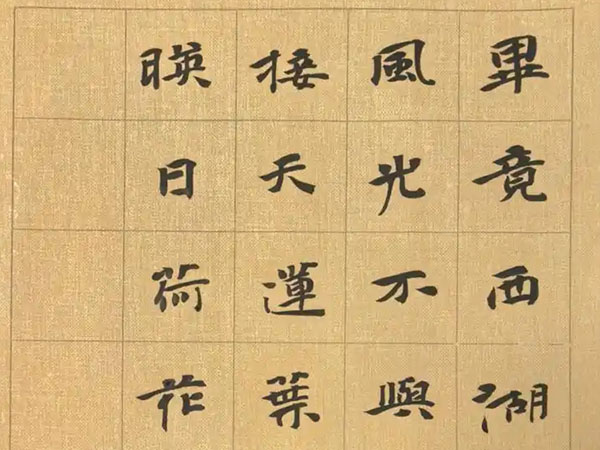 畢竟西湖
風光不與
接天蓮葉
暎日荷花